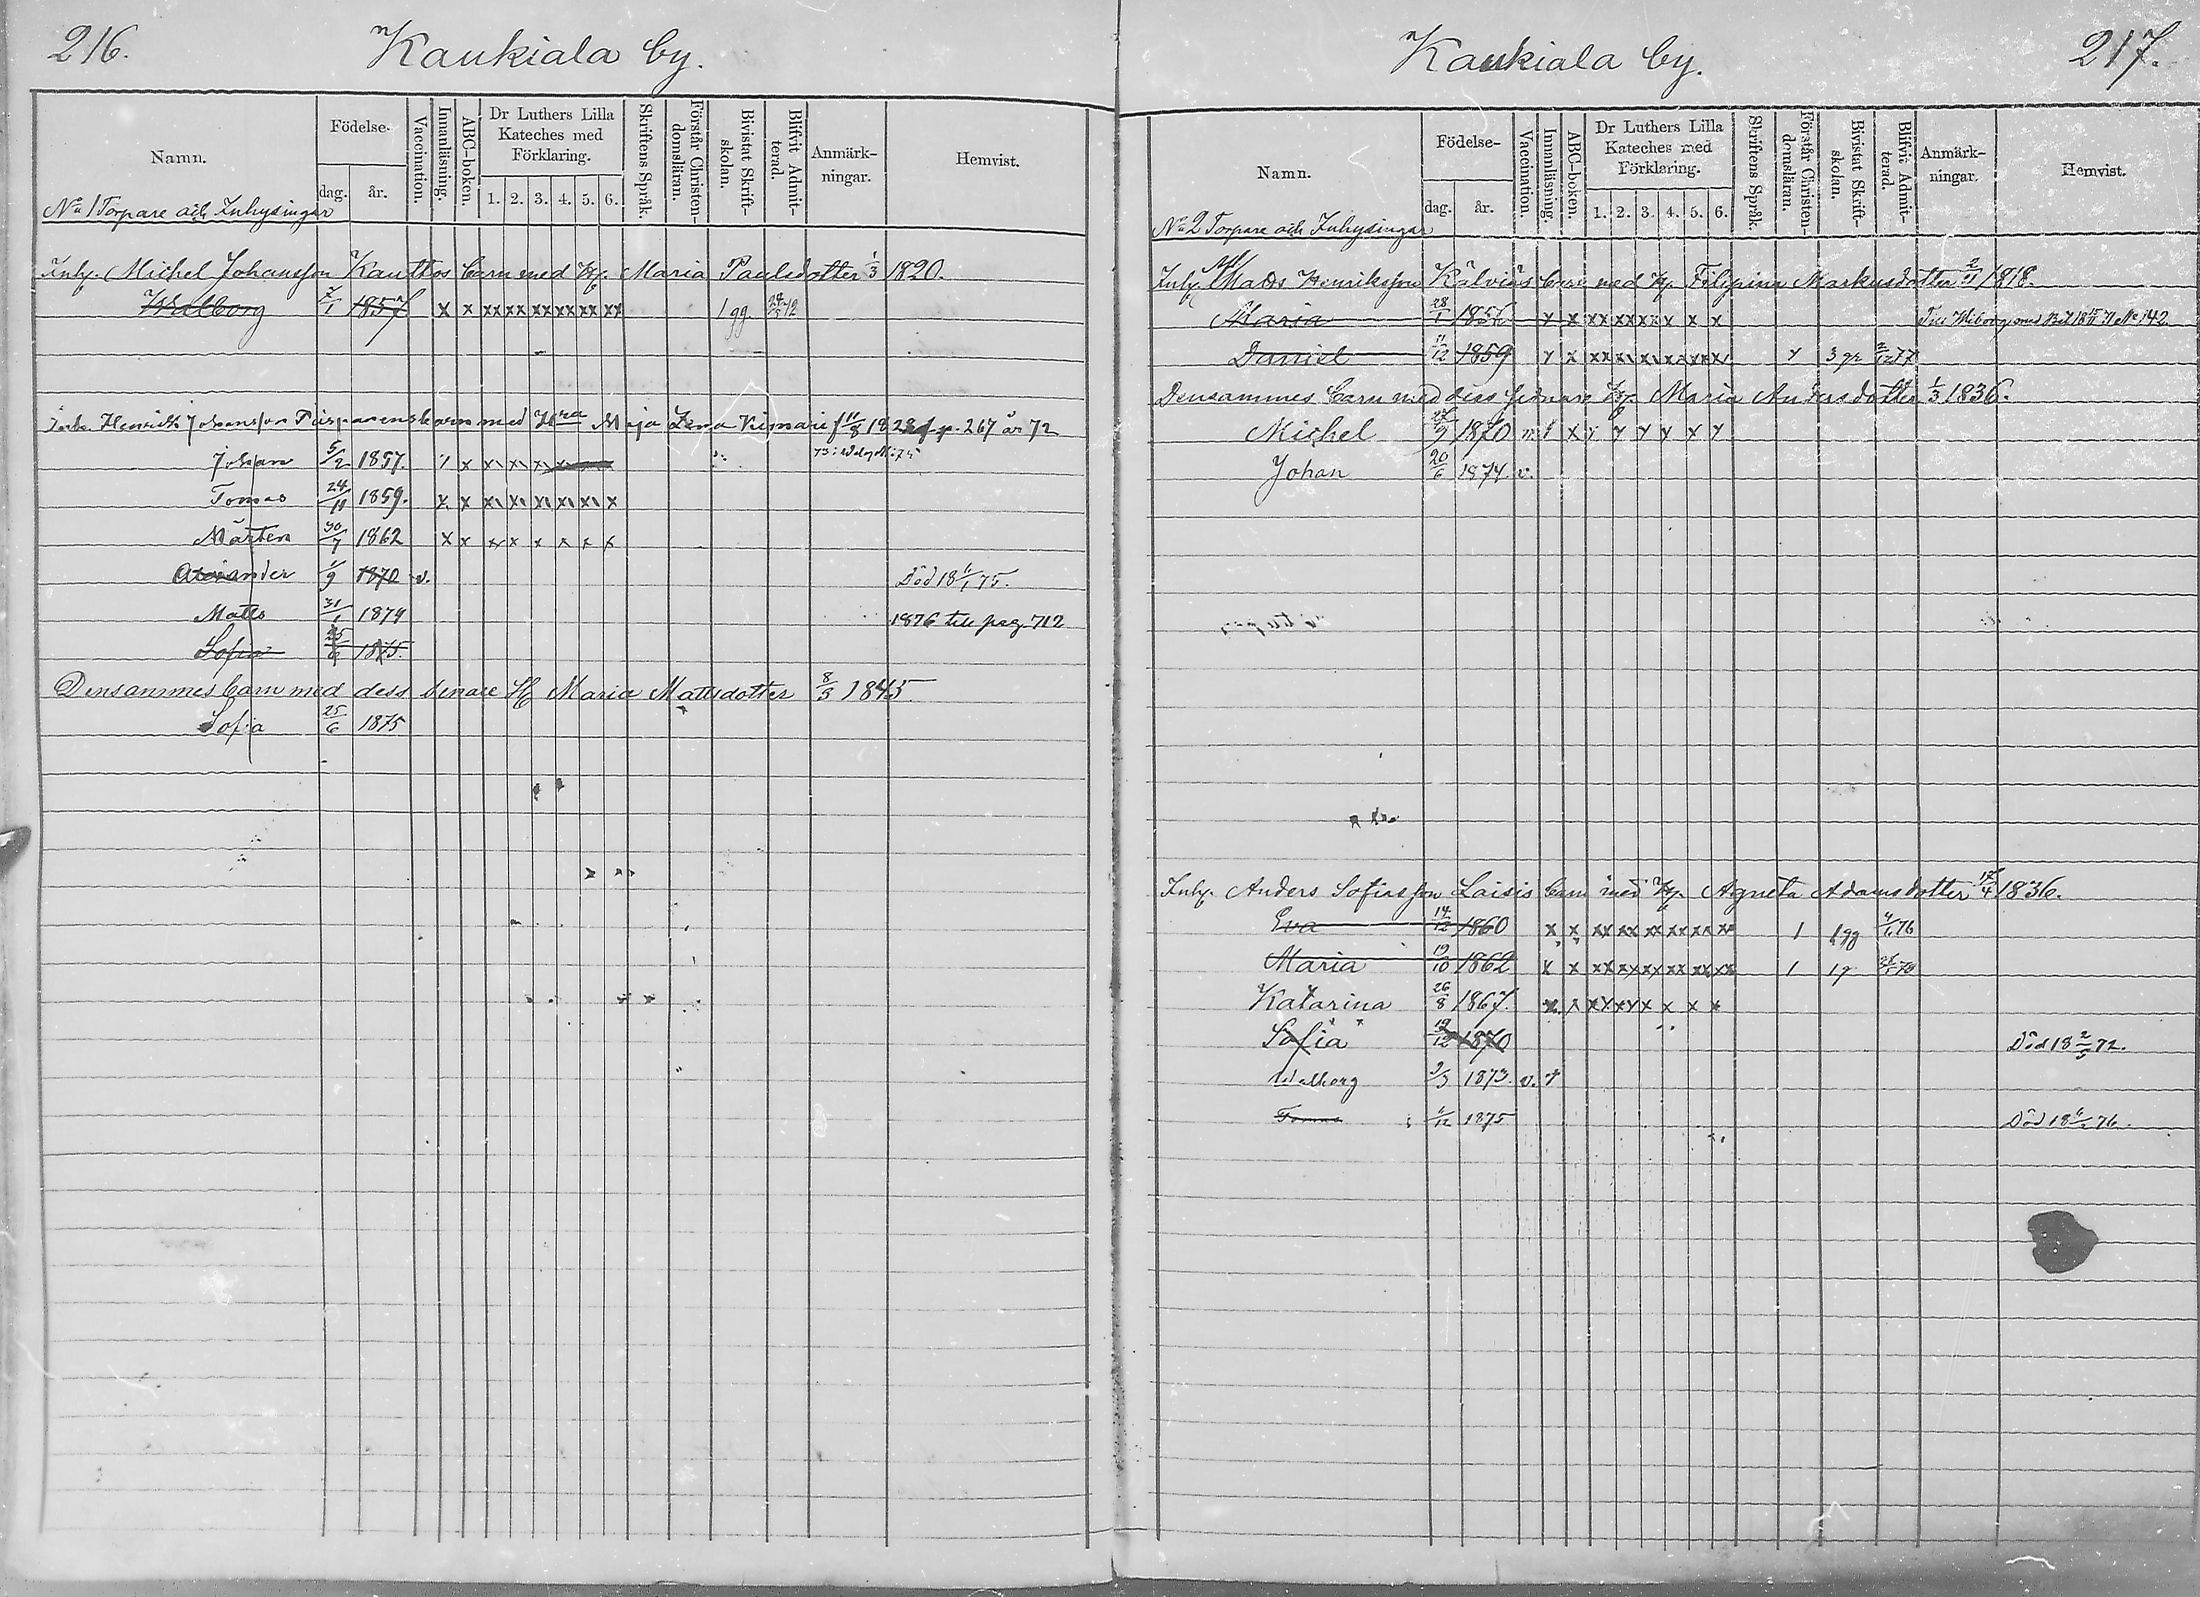 216.
Kaukiala by.
Namn.
Födelse-
dag. år.
Vaccination.
Innanläsning.
ABC-boken.
Dr Luthers Lilla
Kateches med
Förklaring.
1. 2. 3. 4. 5. 6.
Skriftens Språk.
Förstår Christen-
domsläran.
Bivistat Skrift-
skolan.
Blifvit Admit-
terad.
Anmärk-
ningar.
Hemvist.
No 1 Torpare och Inhysingar
Inhy. Michel Johansson Kauttos barn med Hu. Maria Paulsdotter 1/3 1820.
Walborg 7/1 1857 x x xx xx xx xx xx xx 1 gg. 24/5 72
Henrik Johansson barn med Hra Maja Lena 11/8 18 p. 267 år 72
Johan 5/2 1857. x x x x x
Tomas 24/11 1859. x x x x x x x x
Mårten 30/7 1862 x x x x x x x x
1/9 1870 v. Död 18 11/1 75.
Matts 31/1 1874 1876 till pag. 712
Sofia 25/6 1875.
Densammes barn med dess senare Hu Maria Mattsdotter 8/3 1845.
Sofia 25/6 1875
Kaukiala by.
217.
Namn.
Födelse-
dag. år.
Vaccination.
Innanläsning.
ABC-boken.
Dr Luthers Lilla
Kateches med
Förklaring.
1. 2. 3. 4. 5. 6.
Skriftens Språk.
Förstår Christen-
domsläran.
Bivistat Skrift-
skolan.
Blifvit Admit-
terad.
Anmärk-
ningar.
Hemvist.
No 2 Torpare och Inhysingar
Inhy. Matts Henriksson Kälviäs barn med Hu. Filippina Markusdotter 2/11 1818.
Maria 28/1 x x xx xx xx x x x Till Wiborg med Bet 18 15/11 71 No 142
Daniel 11/12 1859 x x xx xx xx xx xx x 3 gr 2/12 77
Densammes barn med dess senare Hu. Maria Andersdotter 1/3 1836.
Michel 27/9 1870 x x x x x x x
Johan 20/6 1874. v.
Inhy. Anders Sofiasson Laisis barn med Hu. Agneta Adamsdotter 17/4 1836.
Eva 14/12 1860 x x xx xx xx xx xx xx 1 1 gg 4/6 76
Maria 19/10 1862 x x xx xx xx xx xx xx 1 1 g
Katarina 26/8 1867. x x xx xx x x x x
Sofia 19/12 1870 Död 18 2/5 72.
Walborg 9/3 1873. v. x
Tomas 1/12 1875 Död 18 76.